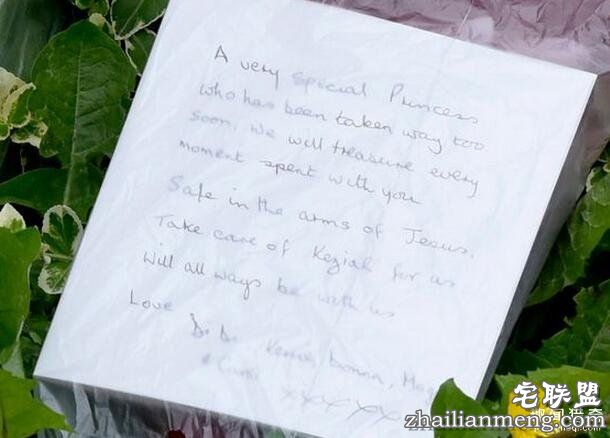 A very special Princess
who has been taken way too
soon. We will treasure every
moment spent with you
Safe in the arms of Jesus.
Take care of Keziah for us
Will all ways be with us
Love
宅联盟
zhailianmeng.com